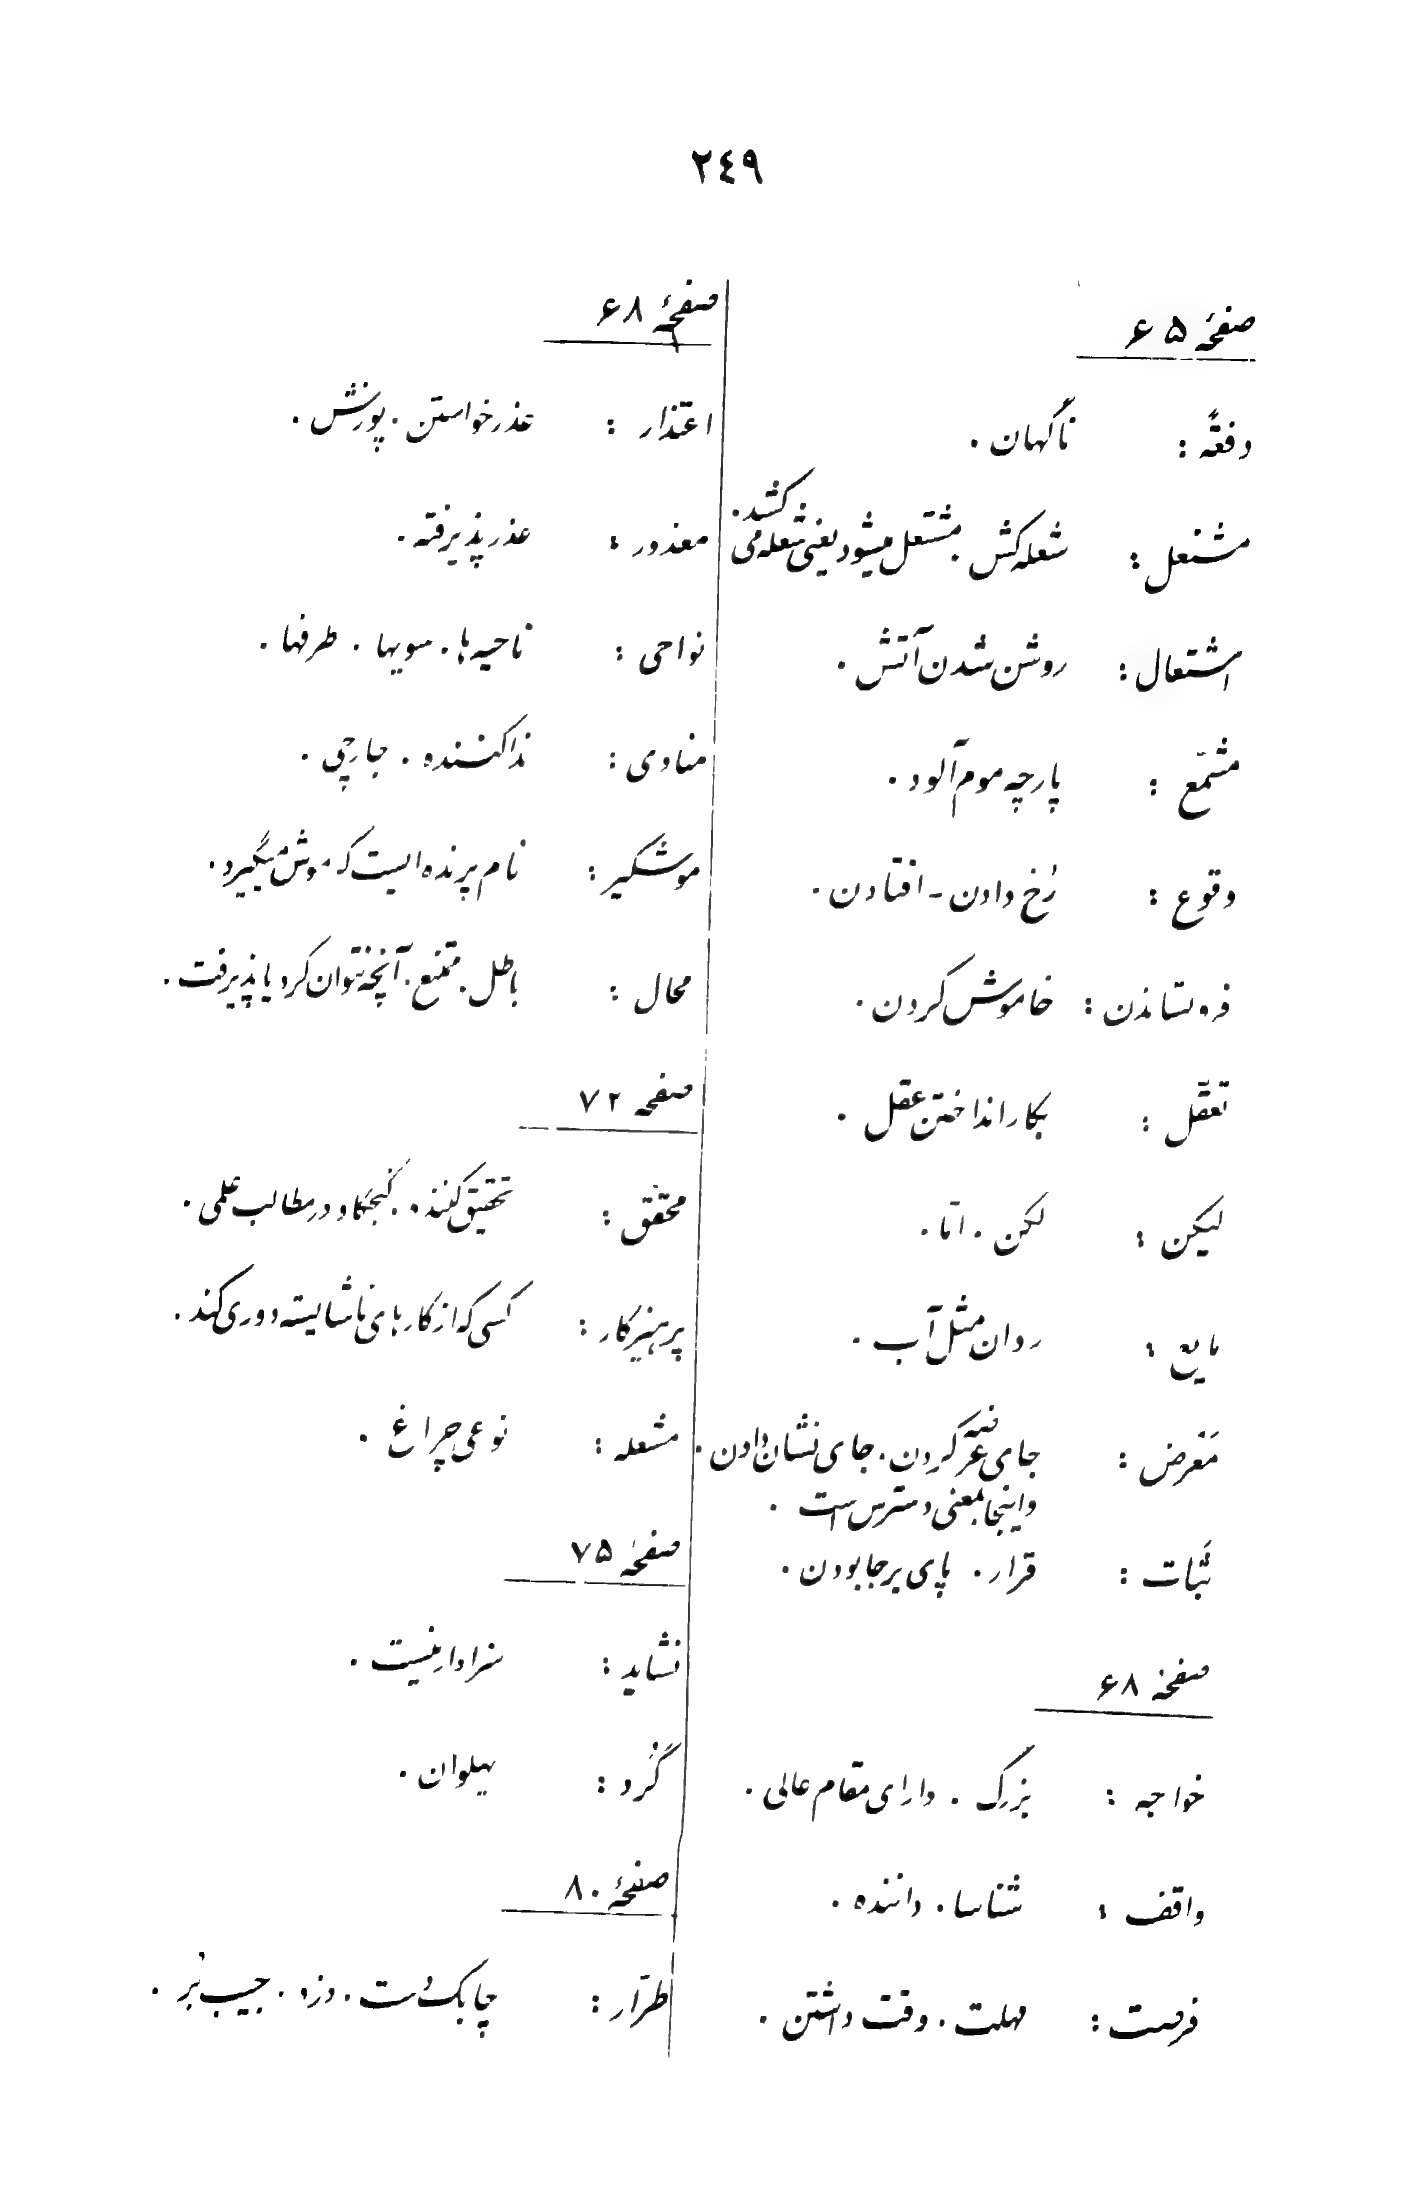 ۲٤۹
صفحهٔ ۶۵
دفعةً : ناگهان .
مشتعل : شعله کش . مشتعل میشود یعنی شعله می کشد .
اشتعال : روشن شدن آتش .
مشمّع : پارچه موم آلود .
وقوع : رُخ دادن - افتادن .
فرو نشاندن : خاموش کردن .
تعقّل : بکار انداختن عقل .
لیکن : لکن . امّا .
مایع : روان مثل آب .
مَعْرض : جای عرضه کردن . جای نشان دادن .
و اینجا بمعنی دسترس است .
ثَبات : قرار . پای برجا بودن .
صفحهٔ ۶۸
خواجه : بزرگ . دارای مقام عالی .
واقف : شناسا . داننده .
فرصت : مهلت . وقت داشتن .
صفحهٔ ۶۸
اعتذار : عذر خواستن . پوزش .
معذور : عذر پذیرفته .
نواحی : ناحیه ها . سویها . طرفها .
منادی : نداکننده . جارچی .
موشگیر : نام پرنده ایست که موش میگیرد .
محال : باطل . ممتنع . آنچه نتوان کرد یا پذیرفت .
صفحه ۷۲
محقّق : تحقیق کننده . کنجکاو در مطالب علمی .
پرهیزکار : کسی که از کارهای ناشایسته دوری کند .
مشعله : نوعی چراغ .
صفحهٔ ۷۵
نشاید : سزاوار نیست .
گُرد : پهلوان .
صفحهٔ ۸۰
طرّار : چابک دست . دزد . جیب بُر .